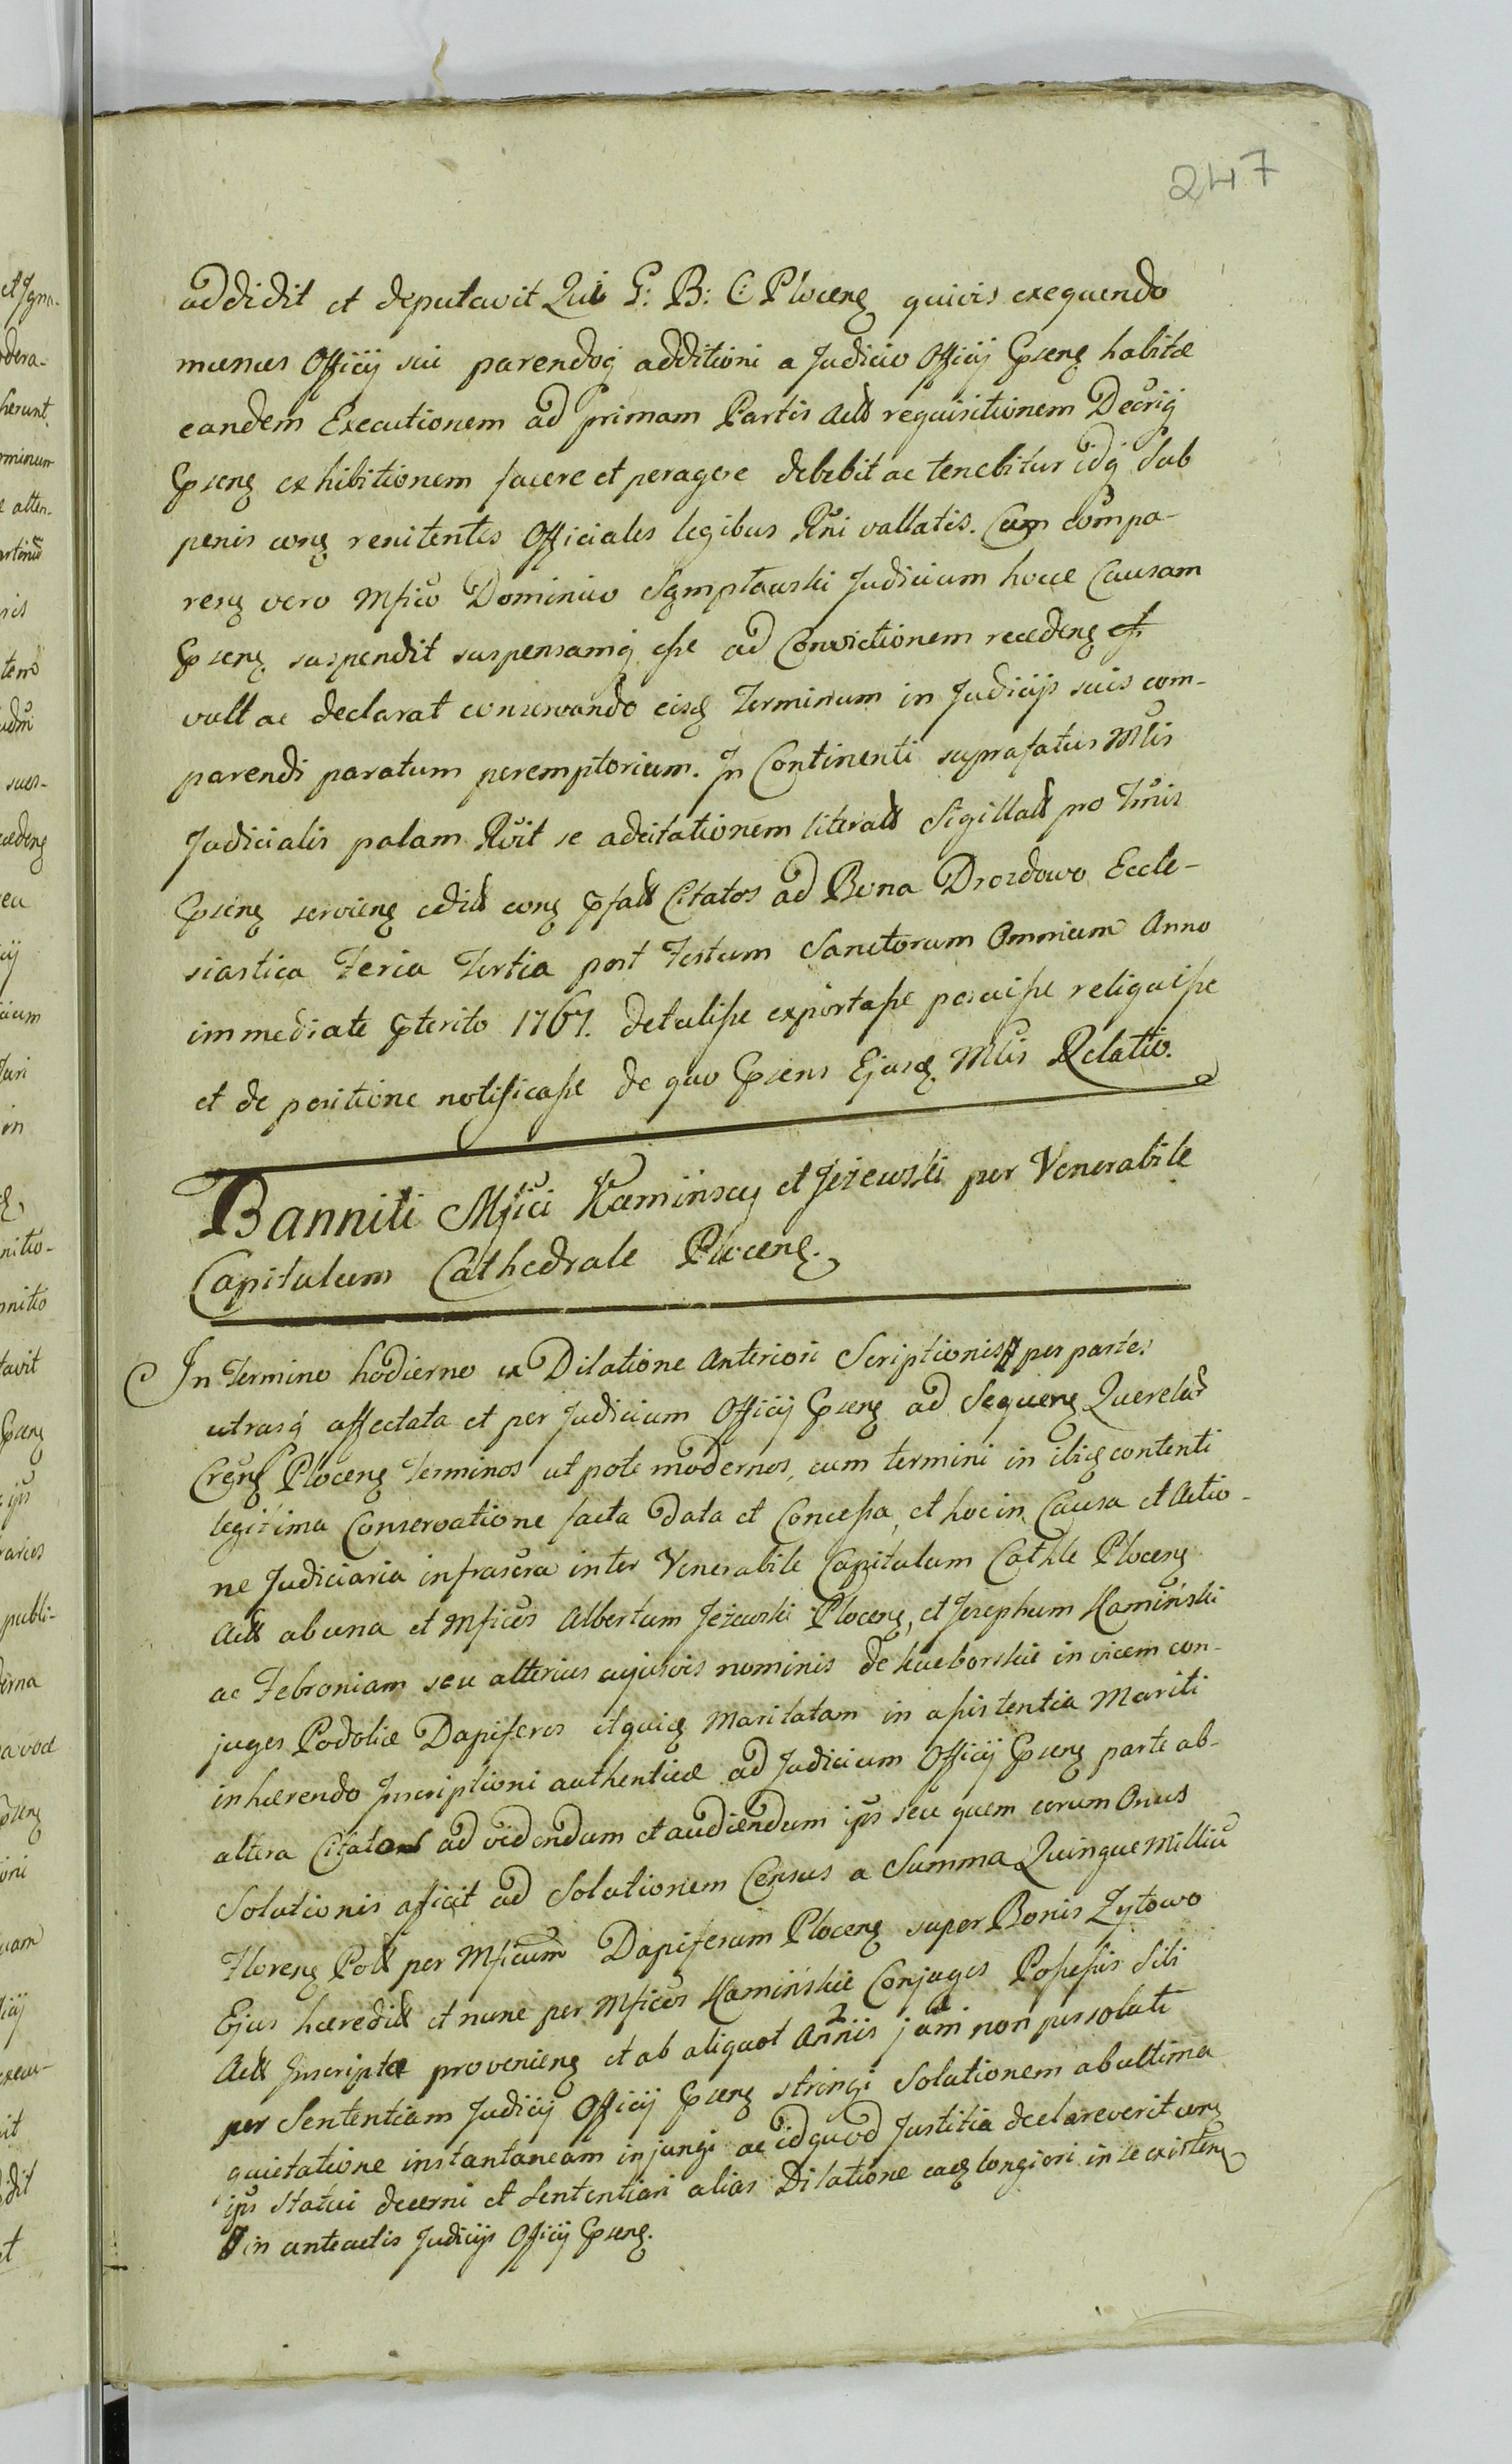 247
addidit et deputavit Qui G: B: C: Plocenȩ quivis exequendo
munus Officij sui parendoq additioni a Judicio Officij Pȩsenȩ habitæ
eandem Executionem ad primam Partis Actt requisitionem Decrig
Pȩsenȩ exhibitionem facere et peragere debebit ac tenebitur idq sub
penis conȩ renitentes Officiales legibus Rni vallatis. Cum compa-
renȩ vero Mfico Dominico Sȩmpławski Judicium hocce Causam
Pȩsenȩ suspendit suspensamq esse ad Convictionem recedenȩ
vult ac declarat conservando eisȩ Terminum in Judicijs suis com-
parendi paratum peremptorium. In Continenti suprafatus Mlis
Judicialis palam Rvit se adcitationem literatt Sigillatt pro Tmis
Pȩsenȩ servienȩ editt conȩ pfatt Citatos ad Bona Drozdowo Eccle-
siastica Feria Tertia post Festum Sanctorum Omnium Anno
immediate Pterito 1767. detulisse exportasse posuisse reliquisse
et de positione notificasse de quo Pȩsens Ejusȩ Mlis Relatio.
Banniti Mfici Kaminscy et Jeżewski per Venerabile
Capitulum Cathedrale Plocenȩ.
In Termino hodierno ex Dilatione Anteriori Scriptionis per partes
utrasq affectata et per Judicium Officij Pȩsenȩ ad Sequenȩ Querelar
Crenȩ Plocenȩ Terminos ut pote modernos, cum termini in iisȩ contenti
legitima Conservatione facta Data et Concessa, et hoc in Causa et Actio-
ne Judiciaria infrascra inter Venerabile Capitulum Cathle Plocenȩ
Actt ab una et Mficos Albertum Jeżewski Plocenȩ, et Josephum Kamiński
ac Febroniam seu alterius cujusvis nominis de Lueborskie invicem con-
juges Podoliæ Dapiferos itquiȩ Maritatam in assistentia Mariti
inhærendo Inscriptioni authenticæ ad Judicium Officij Pȩsenȩ parte ab-
altera Citatos ad videndum et audiendum ips seu quem eorum Onus
Solutionis aficit ad Solutionem Census a Summa Quinque Milliu
Florenȩ Poltt per Mficum Dapiferum Plocenȩ super Bonis Zytowo
Ejus hæreditt et nunc per Mficos Kamińskie Conjuges Possessis Sibi
Actt Inscriptæ provenienȩ et ab aliquot Annis 2 jam non persoluti
per Sententiam Judicij Officij Pȩsenȩ stringi Solutionem ab ultima
quietatione instantaneam injungi ac id quod Justitia declareverit cenȩ
ips Statui decerni et Sententiari alias Dilatione eaȩ longiori in se existenȩ
in anteactis Judicijs Officij Pȩsenȩ.